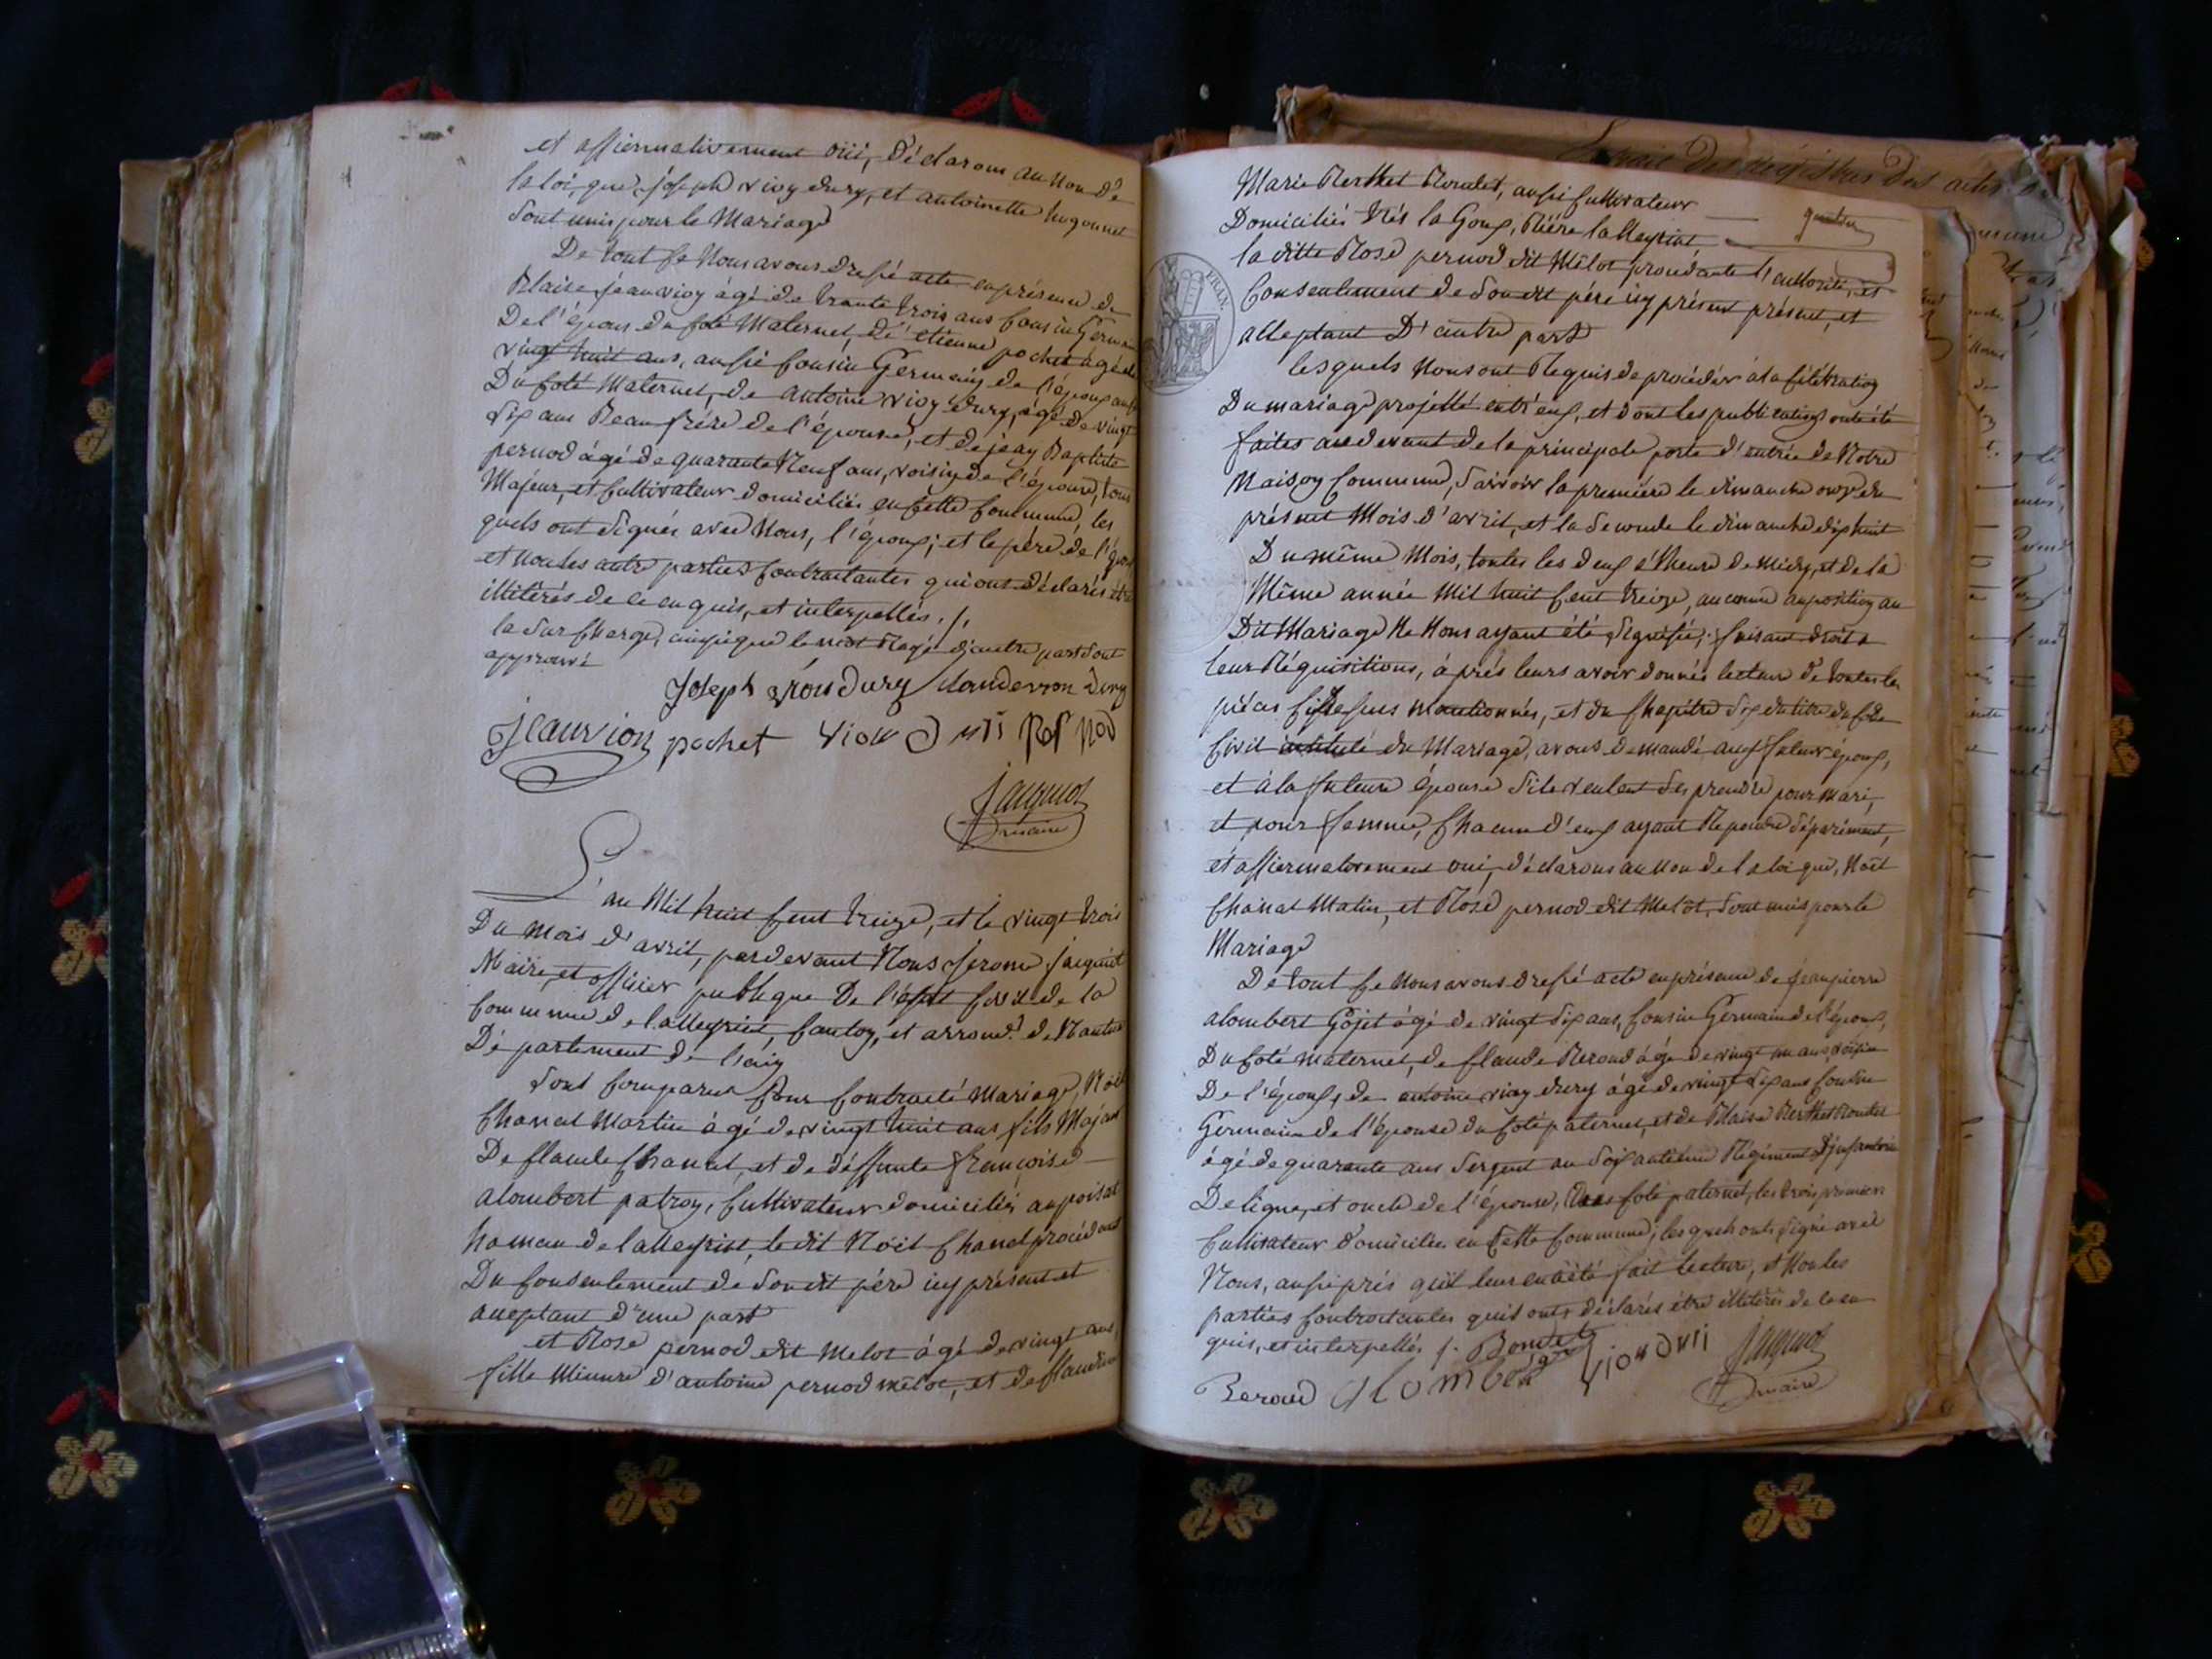 et affiermativement oüi, déclarons au Nom de
la loi, que joseph vioy dury, et antoinette hugonnet
sont unis pour le Mariage
De tout se Nous avons dressé acte en présence de
Blaise jeanvioy âgé de trante trois ans cousin Germain
De l'épous du coté Maternel, de etienne pochet âgé de
vingt huit ans, aussi cousin Germain de l'épous aussi
Du coté Maternel, de antoine vioy dury, âgé de vingt
six ans Beau frére de l'épouse, et de jean Baptiste
pernod âgé de quarante Neuf ans, voisin de l'épouse, tous
Majeur, et cultivateur domiciliés en cette commune, les
quels ont signés avec Nous, l'épous, et le pére de l'épous
et Non les autre parties contractantes qui ont déclarés étre
illitérés de ce enquis, et interpellés ./.
la surcharge, ainsi que le mot Rayé d'autre part sont
approuvé
Joseph vion dury claude vion dury
jeanvion pochet vion durï Per Nod
jacquiot
maire
L'an Mil huit cent treize, et le vingt trois
Du mois d'avril, pardevant Nous jerome jacquiot
Maire, et officier publique De l'état civil de la
commune de lalleyriat, canton, et arrond.t de Nantua
Département de l'ain
sont comparus pour contracté Mariage, Noël
Chanel Martin âgé de vingt huit ans fils Majeur
De claude Chanel, et de déffunte françoise
alombert patroy, cultivateur domiciliés au poisat
hameau de lalleyriat, le dit Noël Chanel procédant
Du consentement de son dit pére icy présent et
acceptant d'une part
et Rose pernod dit Melot âgé de vingt ans,
fille Mineure d'antoine pernod mélot, et de claudine
Marie Berthet Roulet, aussi cultivateur
Domiciliés trés la Gouf, Riére lalleyriat
la ditte Rose pernod dit Mélot procédante de l'authorité, et
Consentement de son dit pére icy présent présent, et
acceptant D'autre part
lesquels Nous ont Requis de procéder à la célébration
Du mariage projetté entr'eux, et dont les publications ont été
faites au devant de la principale porte d'entrée de Notre
Maison Commune, savoir la premiére le dimanche onze du
présent Mois d'avril, et la seconde le dimanche dix huit
Du même Mois, toutes les deux à l'heure de Midy, et de la
Même année Mil huit cent treize, aucunne aupposition au
Dit Mariage Ne Nous ayant été signifié, faisant droit a
leur Réquisitions, àprés leurs avoir donnés lecture de toutes les
piéces cidessus mentionnés, et du Chapitre six du titre du code
Civil intitulé du Mariage, avons demandé au futur épous,
et à la future épouse s'ils veulent se prendre pour Mari,
et pour femme, Chacun d'eux ayant Repondu séparément,
et affiermativement oui, déclarons au Nom de la loi que, Noël
Chanel Matin, et Rose pernod dit Melot, sont unis pour le
Mariage
De tout ce Nous avons dressé acte en présence de jean pierre
alombert Gojet âgé de vingt six ans, cousin Germain de l'épous,
Du coté maternel, de claude Beroud âgé de vingt un ans, voisin
De l'épous, de antoine vioy dury âgé de vingt six ans cousin
Germain de l'épouse du coté paternel, et de Blaise Berthet Roulet
âgé de quarante ans Sergent au Soixantieme Régiment d'infanterie
De ligne, et oncle de l'épouse, du coté paternel, les trois premiers
cultivateur domiciliés en cette Commune, les quels ont signé avec
Nous, aussi prés qu'il leur en a été fait lecture, et Non les
parties contractantes qui ont déclarés étre illitérés de ce en
quis, et interpellés ./.
Beroud alombert vion durï jacquiot
maire